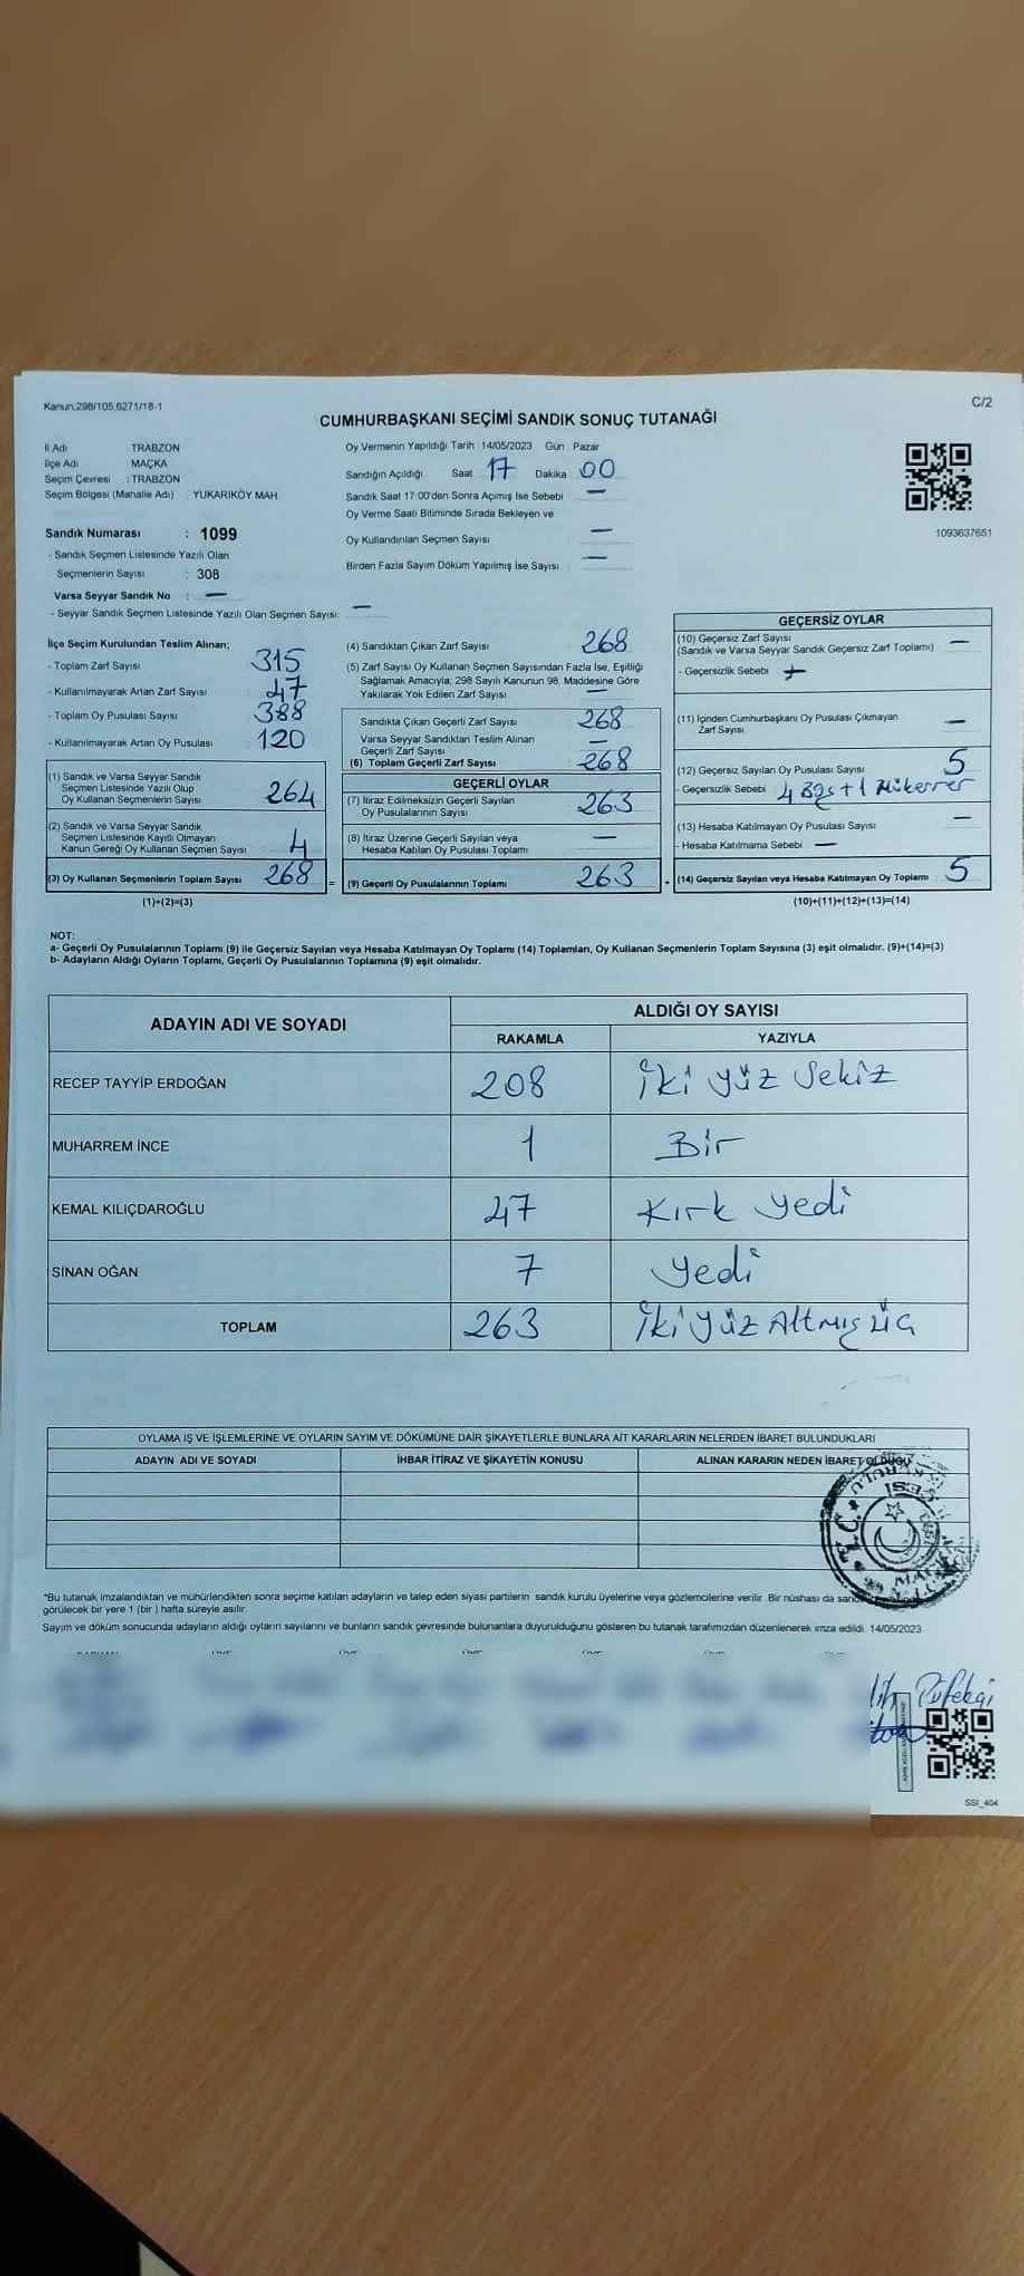 Kanun:298/105,6271/18-1
C/2
CUMHURBAŞKANI SEÇİMİ SANDIK SONUÇ TUTANAĞI
İl Adı TRABZON
İlçe Adı MAÇKA
Seçim Çevresi : TRABZON
Seçim Bölgesi (Mahalle Adı) YUKARIKÖY MAH.
Sandık Numarası : 1099
- Sandık Seçmen Listesinde Yazılı Olan
Seçmenlerin Sayısı : 308
Varsa Seyyar Sandık No : —
- Seyyar Sandık Seçmen Listesinde Yazılı Olan Seçmen Sayısı: —
Oy Vermenin Yapıldığı Tarih 14/05/2023 Gün Pazar
Sandığın Açıldığı Saat 17 Dakika 00
Sandık Saat 17:00'den Sonra Açımış İse Sebebi —
Oy Verme Saati Bitiminde Sırada Bekleyen ve
Oy Kullandırılan Seçmen Sayısı —
Birden Fazla Sayım Döküm Yapılmış İse Sayısı —
1093637651
İlçe Seçim Kurulundan Teslim Alınan;
- Toplam Zarf Sayısı 315
- Kullanılmayarak Artan Zarf Sayısı 47
- Toplam Oy Pusulası Sayısı 388
- Kullanılmayarak Artan Oy Pusulası 120
(1) Sandık ve Varsa Seyyar Sandık
Seçmen Listesinde Yazılı Olup
Oy Kullanan Seçmenlerin Sayısı 264
(2) Sandık ve Varsa Seyyar Sandık
Seçmen Listesinde Kayıtlı Olmayan
Kanun Gereği Oy Kullanan Seçmen Sayısı 4
(3) Oy Kullanan Seçmenlerin Toplam Sayısı 268
(1)+(2)=(3)
(4) Sandıktan Çıkan Zarf Sayısı 268
(5) Zarf Sayısı Oy Kullanan Seçmen Sayısından Fazla İse, Eşitliği
Sağlamak Amacıyla; 298 Sayılı Kanunun 98. Maddesine Göre
Yakılarak Yok Edilen Zarf Sayısı —
Sandıkta Çıkan Geçerli Zarf Sayısı 268
Varsa Seyyar Sandıktan Teslim Alınan
Geçerli Zarf Sayısı —
(6) Toplam Geçerli Zarf Sayısı 268
GEÇERLİ OYLAR
(7) İtiraz Edilmeksizin Geçerli Sayılan
Oy Pusulalarının Sayısı 263
(8) İtiraz Üzerine Geçerli Sayılan veya
Hesaba Katılan Oy Pusulası Toplamı —
= (9) Geçerli Oy Pusulalarının Toplamı 263 +
GEÇERSİZ OYLAR
(10) Geçersiz Zarf Sayısı
(Sandık ve Varsa Seyyar Sandık Geçersiz Zarf Toplamı) —
- Geçersizlik Sebebi —
(11) İçinden Cumhurbaşkanı Oy Pusulası Çıkmayan
Zarf Sayısı —
(12) Geçersiz Sayılan Oy Pusulası Sayısı 5
- Geçersizlik Sebebi 4 Boş + 1 Mükerrer
(13) Hesaba Katılmayan Oy Pusulası Sayısı —
- Hesaba Katılmama Sebebi —
(14) Geçersiz Sayılan veya Hesaba Katılmayan Oy Toplamı 5
(10)+(11)+(12)+(13)=(14)
NOT:
a- Geçerli Oy Pusulalarının Toplamı (9) ile Geçersiz Sayılan veya Hesaba Katılmayan Oy Toplamı (14) Toplamları, Oy Kullanan Seçmenlerin Toplam Sayısına (3) eşit olmalıdır. (9)+(14)=(3)
b- Adayların Aldığı Oyların Toplamı, Geçerli Oy Pusulalarının Toplamına (9) eşit olmalıdır.
ADAYIN ADI VE SOYADI ALDIĞI OY SAYISI
RAKAMLA YAZIYLA
RECEP TAYYİP ERDOĞAN 208 İki yüz sekiz
MUHARREM İNCE 1 Bir
KEMAL KILIÇDAROĞLU 47 Kırk yedi
SİNAN OĞAN 7 yedi
TOPLAM 263 İki yüz Altmış üç
OYLAMA İŞ VE İŞLEMLERİNE VE OYLARIN SAYIM VE DÖKÜMÜNE DAİR ŞİKAYETLERLE BUNLARA AİT KARARLARIN NELERDEN İBARET BULUNDUKLARI
ADAYIN ADI VE SOYADI İHBAR İTİRAZ VE ŞİKAYETİN KONUSU ALINAN KARARIN NEDEN İBARET OLDUĞU
*Bu tutanak imzalandıktan ve mühürlendikten sonra seçime katılan adayların ve talep eden siyasi partilerin sandık kurulu üyelerine veya gözlemcilerine verilir. Bir nüshası da
görülecek bir yere 1 (bir) hafta süreyle asılır.
Sayım ve döküm sonucunda adayların aldığı oyların sayılarını ve bunların sandık çevresinde bulunanlara duyurulduğunu gösteren bu tutanak tarafımızdan düzenlenerek imza edildi. 14/05/2023
SSI_404